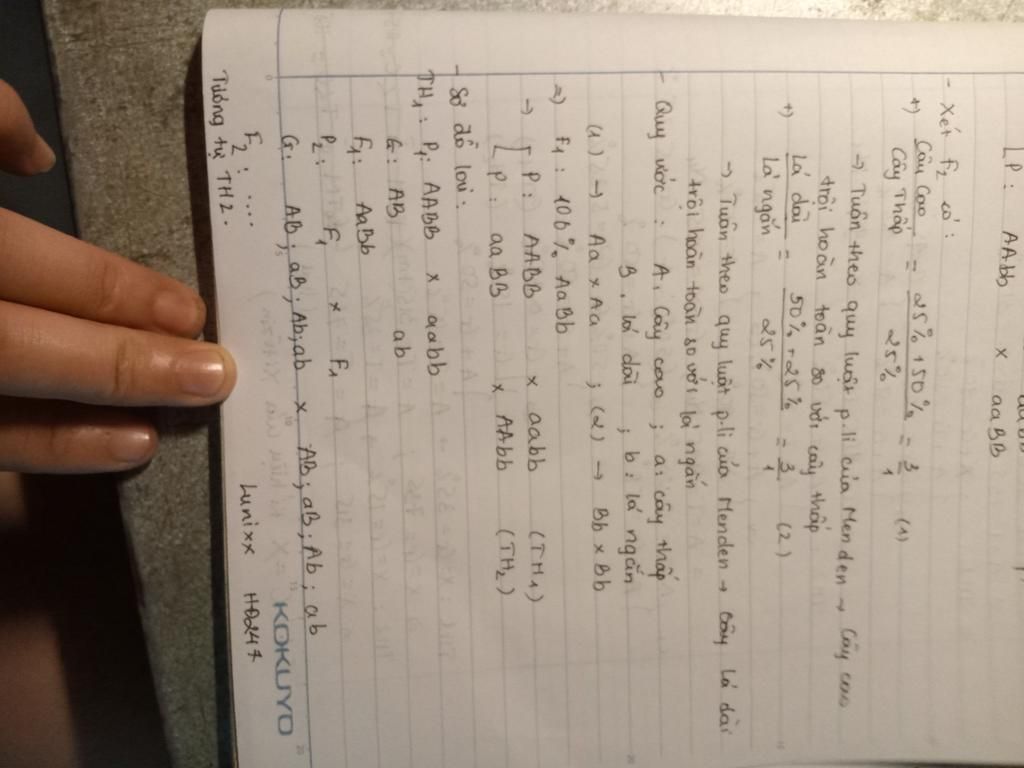 aaBB
[ P: AAbb x aaBB
- Xét F2 có:
+) Cây Cao / Cây Thấp = 25% + 50% / 25% = 3/1 (1)
→ Tuân theo quy luật p.li của Menden → Cây cao
trội hoàn toàn so với cây thấp
+) Lá dài / Lá ngắn = 50% + 25% / 25% = 3/1 (2)
→ Tuân theo quy luật p.li của Menden → Cây Lá dài
trội hoàn toàn so với lá ngắn
- Quy ước: A: Cây cao ; a: cây thấp
B: lá dài ; b: lá ngắn
(1) → Aa x Aa ; (2) → Bb x Bb
=> F1: 100% AaBb
→ [ P: AABB x aabb (TH1)
[ P: aaBB x AAbb (TH2)
- Sơ đồ lai:
TH1: P1: AABB x aabb
G: AB ab
F1: AaBb
P2: F1 x F1
G: AB; aB; Ab; ab x AB; aB; Ab; ab
F2: ....
Tương tự TH2.
Lunixx HĐ247
KOKUYO